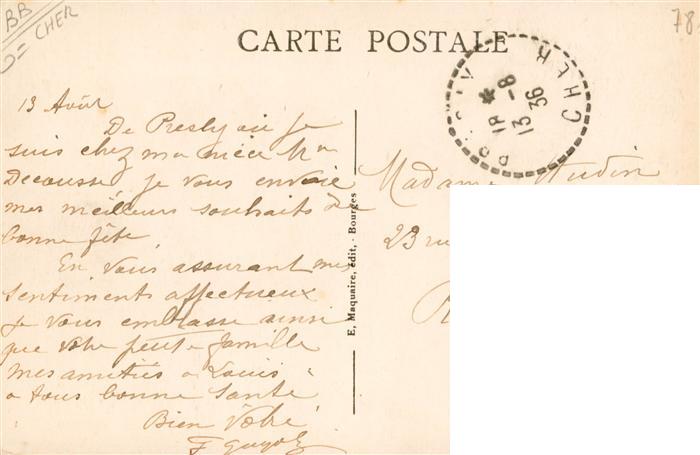 BB
= CHER
78
CARTE POSTALE
CHER
1P * 13 -8 36
13 Août
De Presly où je
suis chez ma nièce Me
Decousse je vous envoie
mes meilleurs souhaits de
bonne fête
En vous assurant mes
sentiments affectueux
je vous embrasse ainsi
que votre petite famille
mes amitiés a Louis
a tous bonne santé
Bien Votre
F Guyot
E. Maquaire, édit. - Bourges
Madame Audin
23 ru